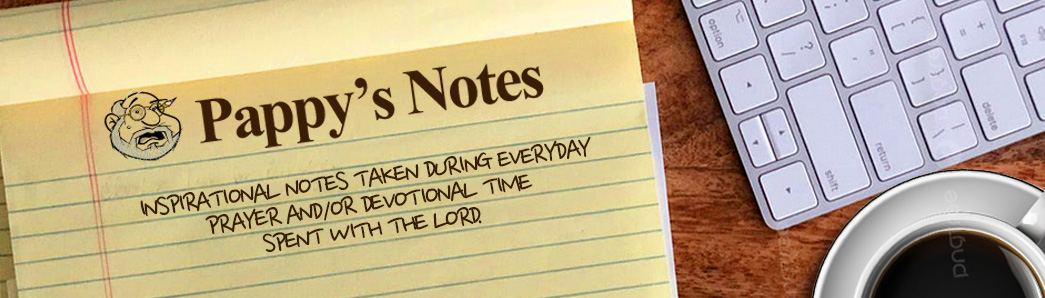 Pappy's Notes
INSPIRATIONAL NOTES TAKEN DURING EVERYDAY
PRAYER AND/OR DEVOTIONAL TIME
SPENT WITH THE LORD.
option
shift
return
delete
pngtree